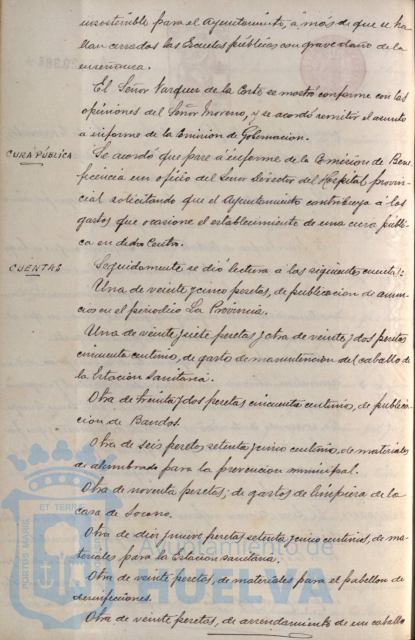 insostenible para el Ayuntamiento, a más de que se ha-
llan cerradas las Escuelas públicas con grave daño de la
enseñanza.
El Señor Vazquez de la Corte se mostró conforme con las
opiniones del Señor Moreno, y se acordó remitir el asunto
a informe de la Comisión de Gobernacion.
CURA PÚBLICA
Se acordó que pase a informe de la Comisión de Bene-
ficencia un oficio del Señor Director del Hospital provin-
cial solicitando que el Ayuntamiento contribuya a los
gastos que ocasione el establecimiento de una cura públi-
ca en dicho Centro.
CUENTAS
Seguidamente se dió lectura a las siguientes cuentas:
Una de veinte y cinco pesetas, de publicacion de anun-
cios en el periodico La Provincia.
Una de veinte y siete pesetas y otra de veinte y dos pesetas
cincuenta centimos, de gasto de manutencion del caballo de
la Estación Sanitaria.
Otra de treinta y dos pesetas cincuenta centimos, de publica-
cion de Bandos.
Otra de seis pesetas setenta y cinco centimos, de materiales
de alumbrado para la prevencion municipal.
Otra de noventa pesetas, de gastos de limpieza de la
casa de Socorro.
Otra de diez y nueve pesetas setenta y cinco centimos, de ma-
teriales para la Estacion sanitaria.
Otra de veinte pesetas, de materiales para el pabellon de
desinfecciones.
Otra de veinte pesetas, de arrendamiento de un caballo
PORTUS MARIS
ET TERR
Ayuntamiento de
HUELVA